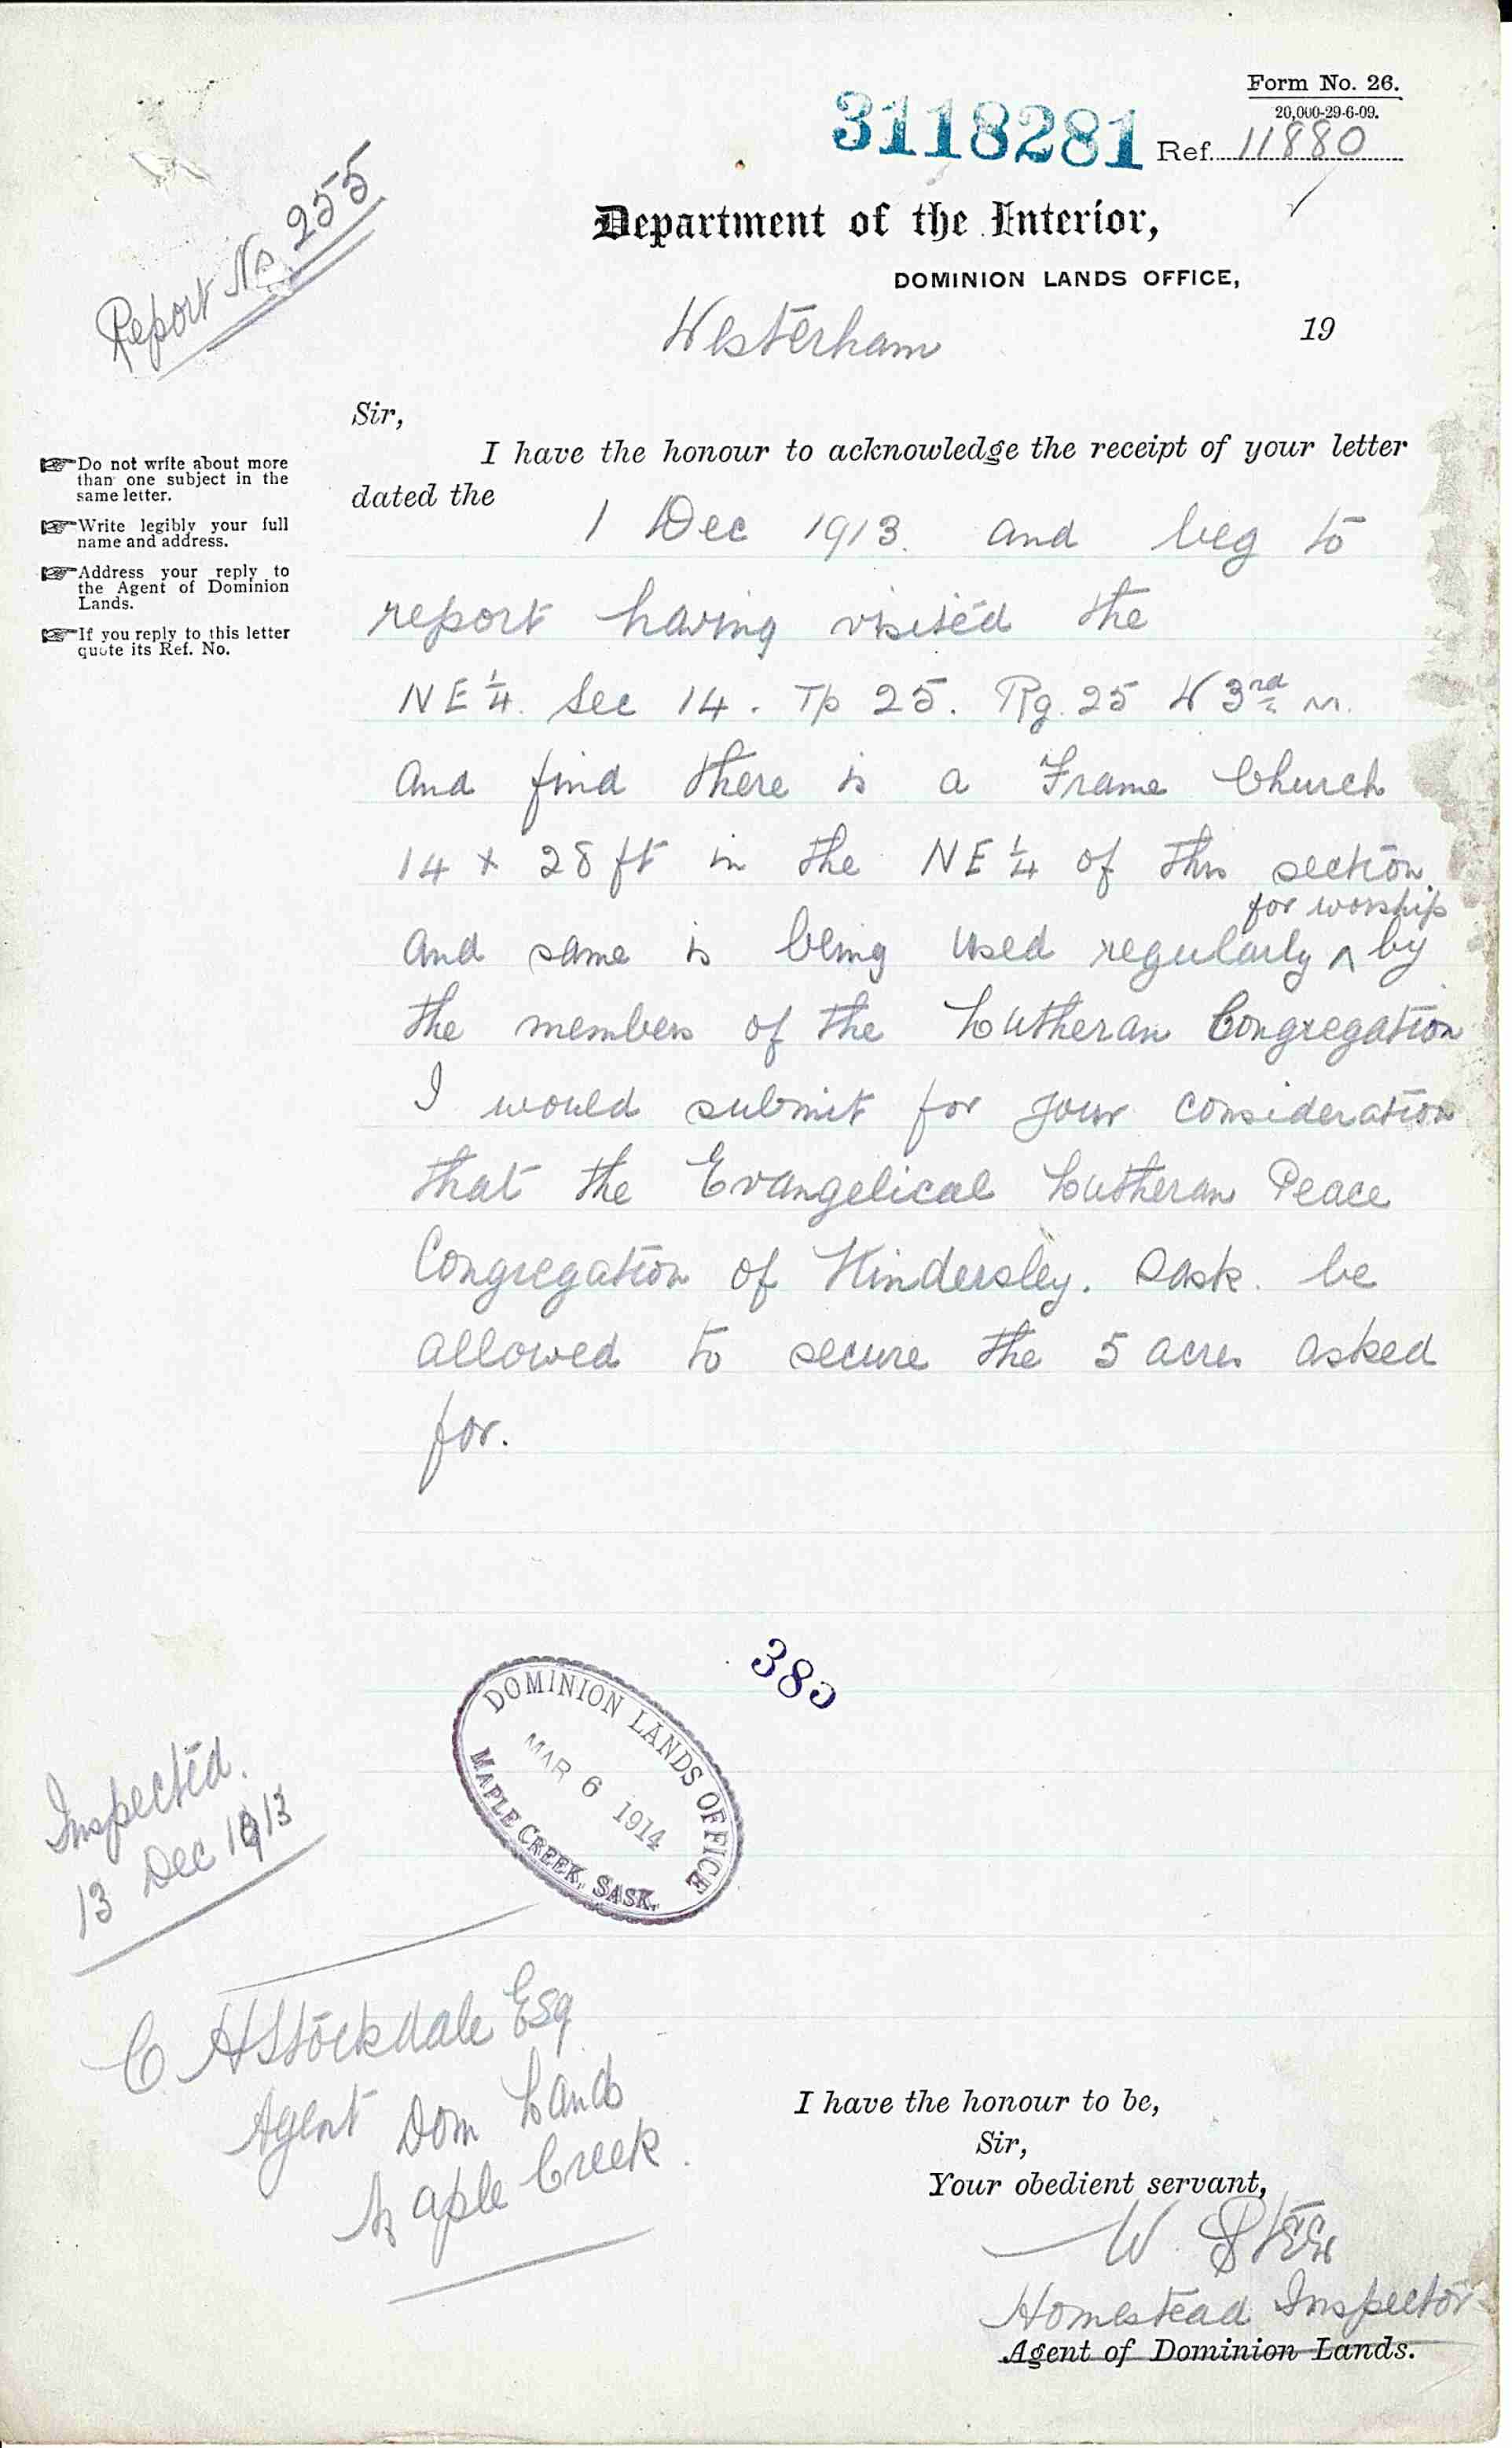 Form No. 26.
20,000-29-6-09.
3118281 Ref. 11880
Report No 255
Department of the Interior,
DOMINION LANDS OFFICE,
Westerham 19
Sir,
I have the honour to acknowledge the receipt of your letter
dated the
1 Dec 1913. and beg to
report having visited the
NE 1/4. Sec 14. Tp 25. Rg. 25 W 3rd M.
and find there is a Frame Church
14 x 28 ft in the NE 1/4 of this section
for worship
and same is being used regularly ^ by
the members of the Lutheran Congregation
I would submit for your consideration
that the Evangelical Lutheran Peace
Congregation of Kindersley. Sask. be
allowed to secure the 5 acres asked
for.
☞ Do not write about more
than one subject in the
same letter.
☞ Write legibly your full
name and address.
☞ Address your reply to
the Agent of Dominion
Lands.
☞ If you reply to this letter
quote its Ref. No.
DOMINION LANDS OFFICE
MAR 6 1914
MAPLE CREEK, SASK.
Inspected.
13 Dec 1913
C. H Stockdale Esq
Agent Dom Land
Maple Creek.
I have the honour to be,
Sir,
Your obedient servant,
W.
Homestead Inspector
Agent of Dominion Lands.